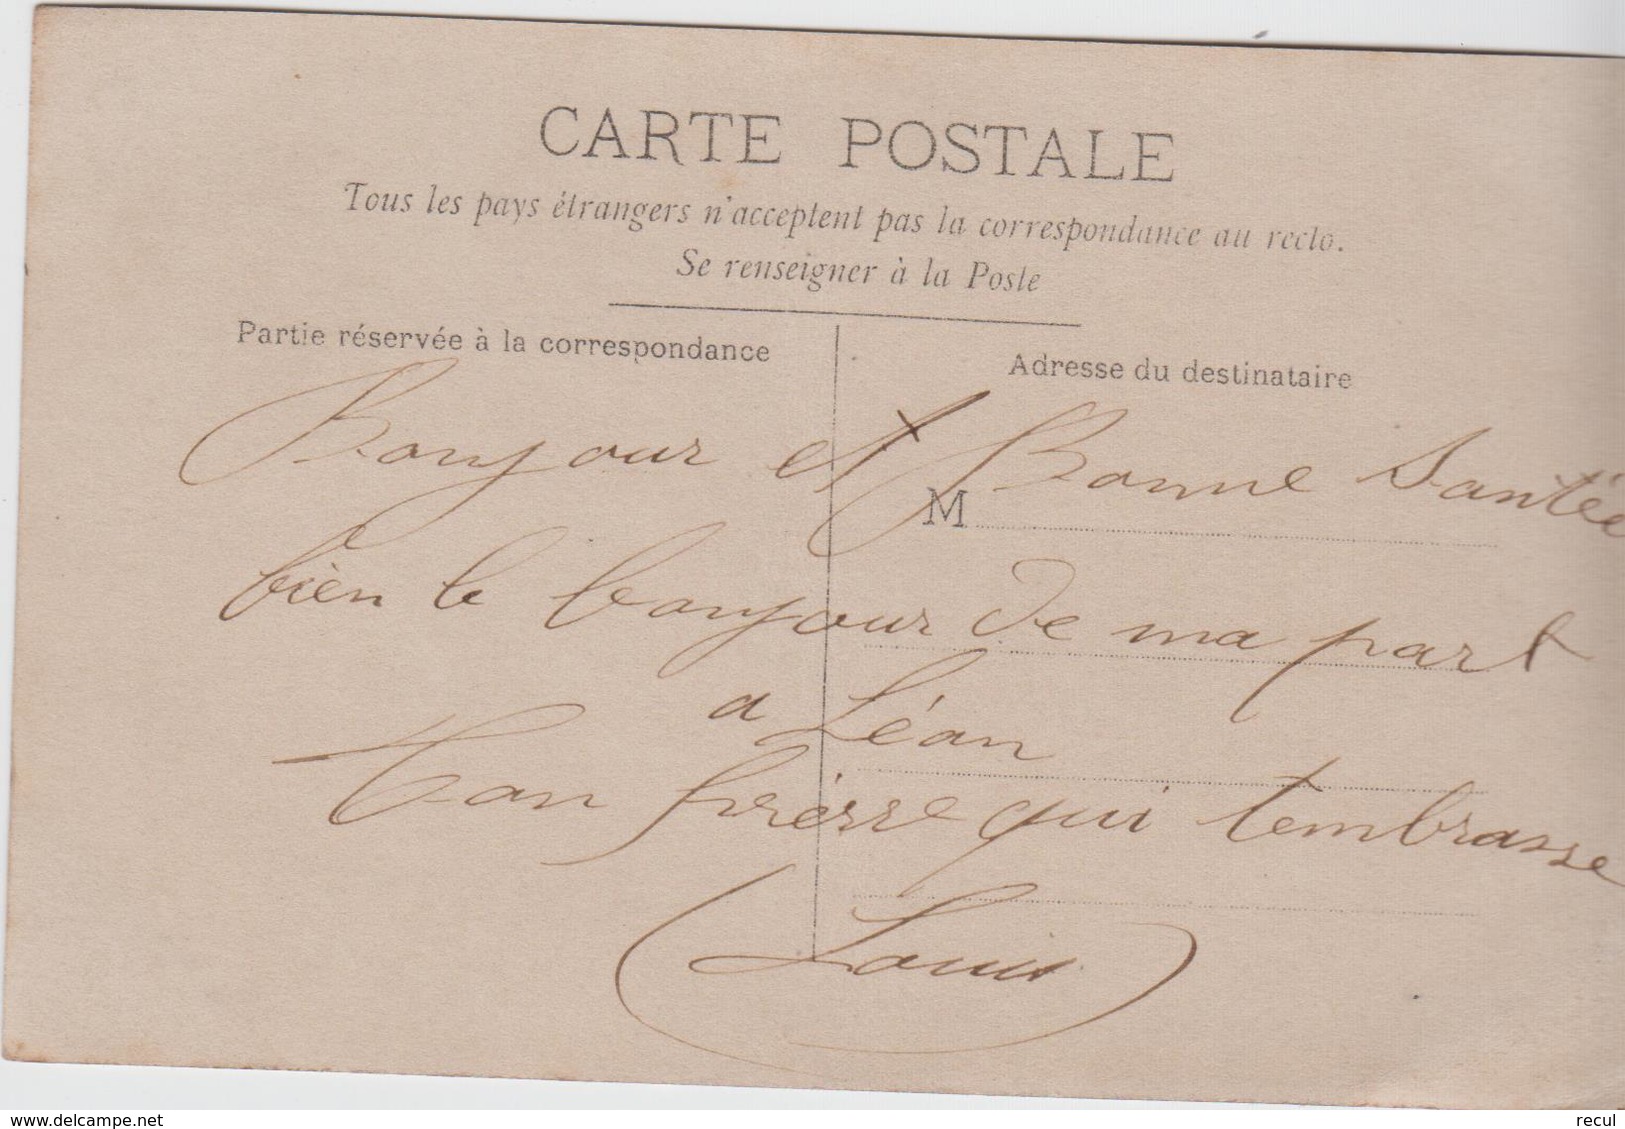 CARTE POSTALE
Tous les pays étrangers n'acceptent pas la correspondance au recto.
Se renseigner à la Poste
Partie réservée à la correspondance
Adresse du destinataire
M
Bonjour et Bonne Santée
bien le bonjour de ma part
a Léon
Ton frérre qui tembrasse
Louis
www.delcampe.net
recul